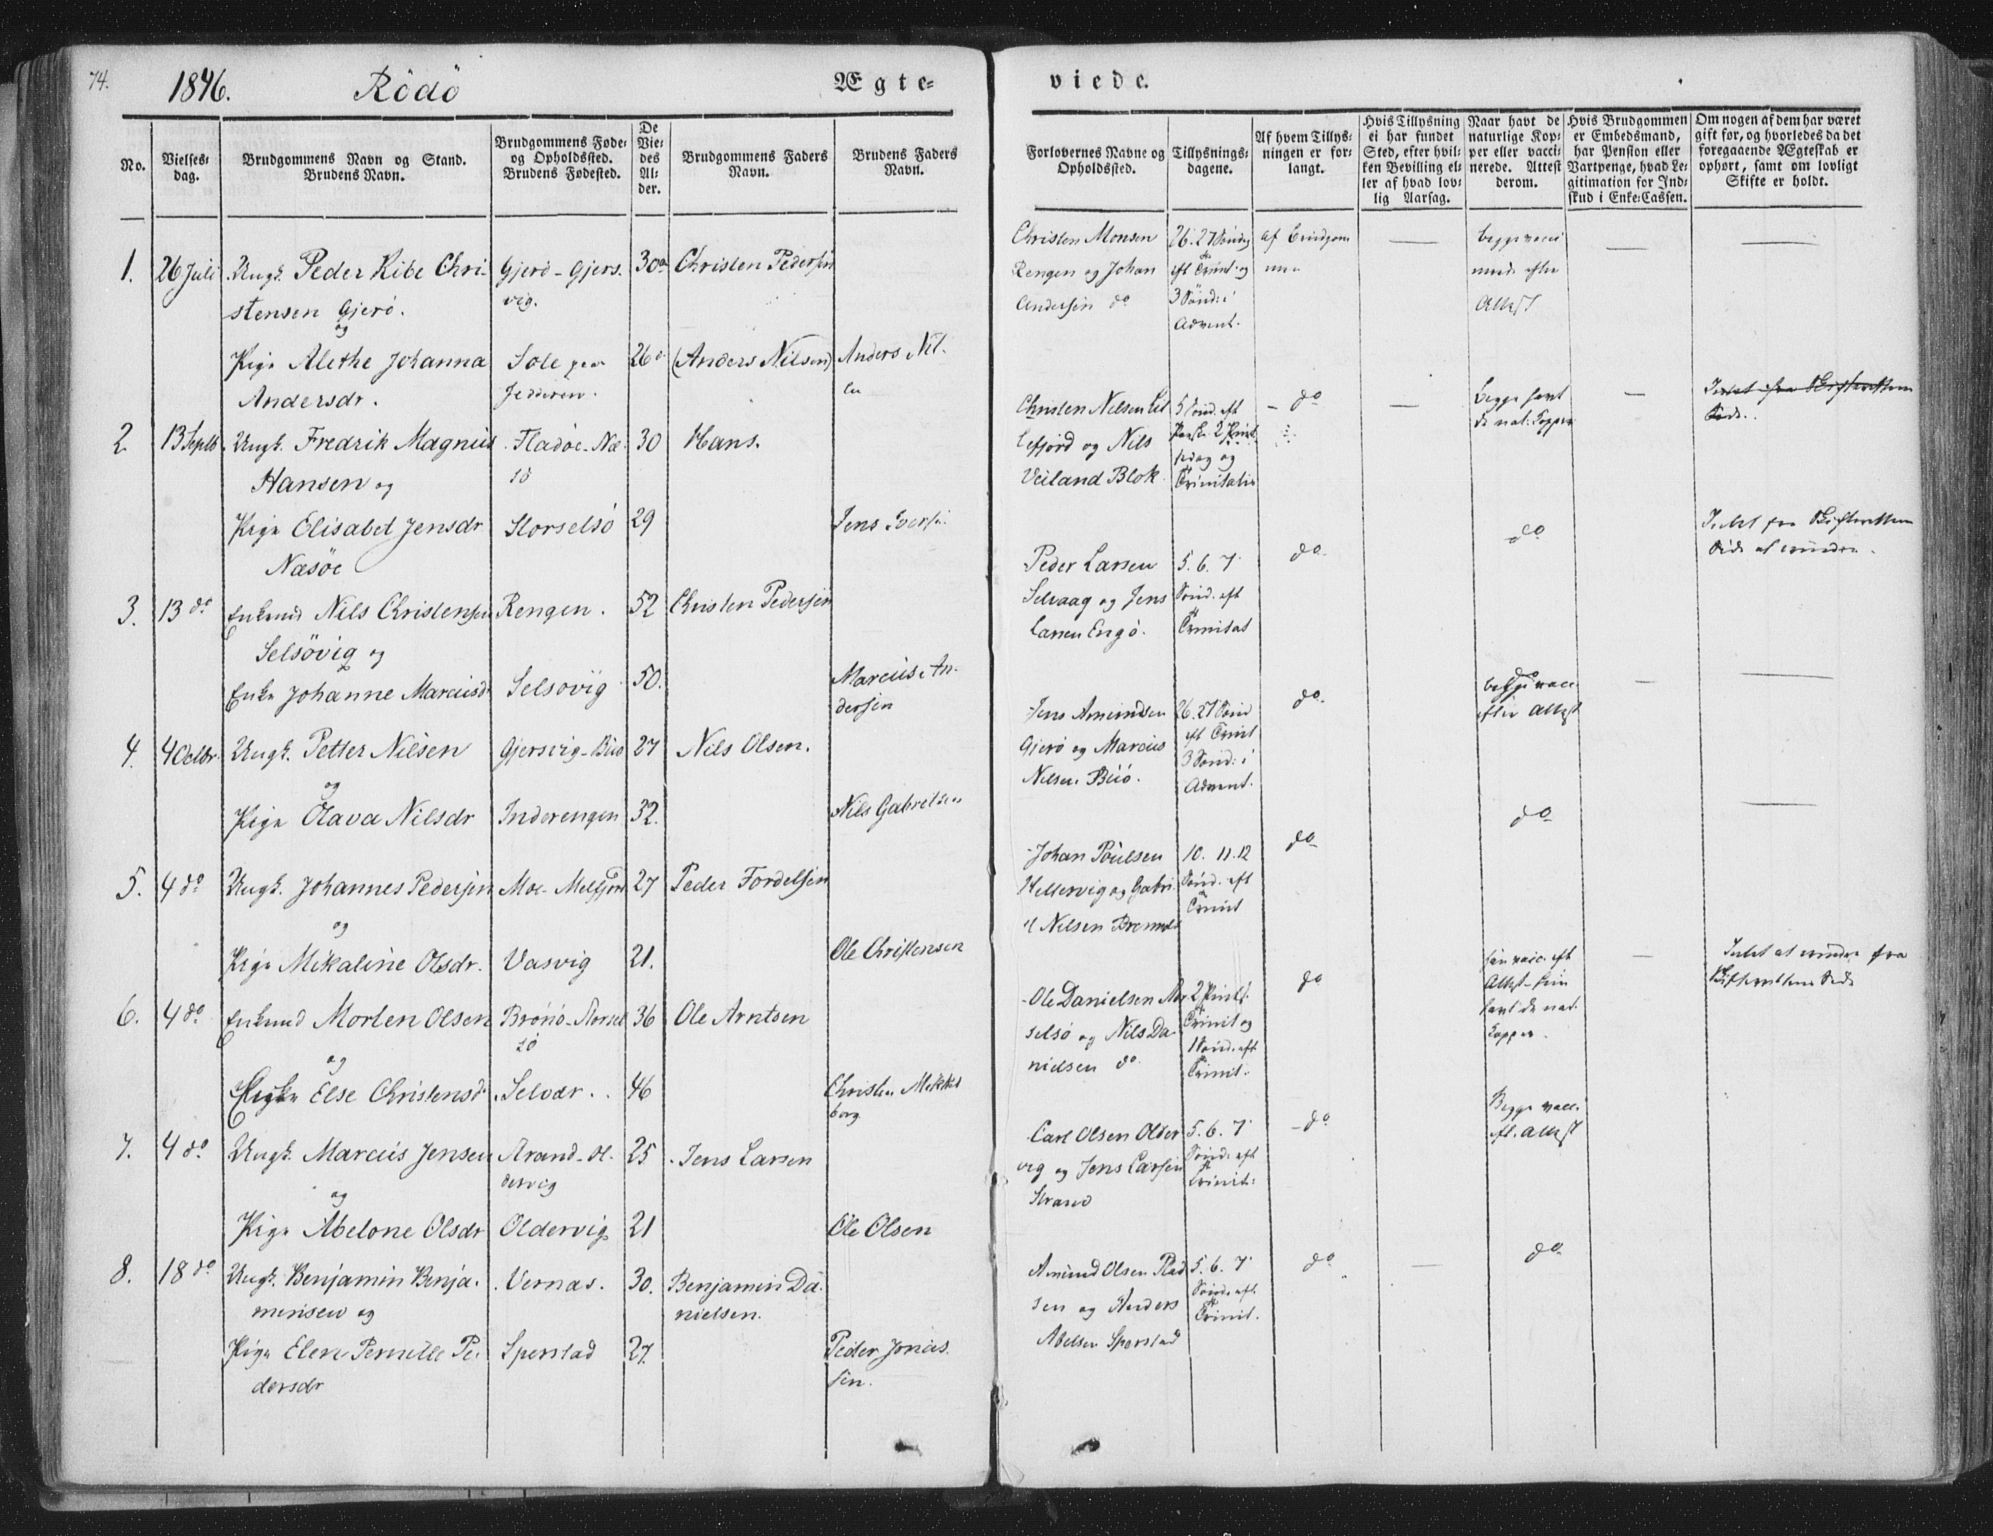 74.
1846. Rödö Ægte-
viede.
No.
Vielses-
dag.
Brudgommens Navn og Stand.
Brudens Navn.
Brudgommens Føde-
og Opholdssted.
Brudens Fødested.
De
Vie-
des
Al-
der.
Brudgommens Faders
Navn.
Brudens Faders
Navn.
Forlovernes Navne og
Opholdssted.
Tillysnings-
dagene.
Af hvem Tillys-
ningen er for-
langt.
Hvis Tillysning
ei har fundet
Sted, efter hvil-
ken Bevilling el-
ler af hvad lov-
lig Aarsag.
Naar havt de
naturlige Kop-
per eller vacci-
nerede. Attest
derom.
Hvis Brudgommen
er Embedsmand,
har Pension eller
Vartpenge, hvad Le-
gitimation for Ind-
skud i Enke-Cassen.
Om nogen af dem har været
gift for, og hvorledes da det
foregaaende Ægteskab er
ophørt, samt om lovligt
Skifte er holdt.
1. 26 Juli Ungk. Peder Ribe Chri- Gjerö - Gjers- 30 Christen Pedersen
stensen Gjerö. vig.
og
Pige Alethe Johanna Sole 26 (Anders Nilsen) Anders Nil-
Andersdr. Jedderen.
Christen Monsen
Rengen og Johan
Andersen do
26. 27 Sönd.
eft Trinit. og
3 Sönd: i
Advent.
af Brudgom
Attest
2. 13 Septb Ungk. Fredrik Magnus Fladöe - Næ- 30 Hans.
Hansen og sö
Pige Elisabet Jensdr Storselsö 29 Jens Iversen
Næsöe
Christen Nilsen Lil
lefjord og Nils
Veiland Blok.
5 Sönd. eft
Paaske 2 Pints
edag og
Trinitatis
do
Begge havt
de nat. Kopper
3. 13 do Enkemd Nils Christensen Rengen. 52 Christen Pedersen
Selsövig og
Enke Johanne Marcusdr Selsövig 50. Marcus An-
dersen
Peder Larsen
Selvaag og Jens
Larsen Engö.
5. 6. 7
Sönd. eft
Trinitat
do
do
Intet fra Skifterettens
Side at erindre.
4. 4 Octbr Ungk. Petter Nilsen Gjersvig - Buö 27 Nils Olsen.
og
Pige Olava Nilsdr Inderengen 32. Nils Gabrielsen
Jens Amundsen
Gjerö og Marcus
Nilsen Buö.
26. 27 Sönd
eft Trinit
3 Sönd: i
Advent.
do
begge vacc.
efter Attest
5. 4 do Ungk. Johannes Pedersen Moe - Melfjord 27 Peder Fordelsen
og
Pige Mikaline Olsdr. Vasvig 21. Ole Christensen
Johan Poulsen
Hellervig og Gabri
el Nilsen
10. 11. 12
Sönd. eft
Trinit
do
do
6. 4 do Enkemd Morten Olsen Brönö - 36 Ole Arntsen
og sö
Enke Else Christensdr Selvær. 46 Christen Mikkel
borg
Ole Danielsen Nor
selsö og Nils Da
nielsen do
2 Pints.
Trinit og
1 Sönd. eft
Trinit.
do
hun vacc. eft
Attest - han
havt de nat.
Kopper.
Intet at erindre fra
Skifterettens Side
7. 4 do Ungk. Marcus Jensen Strand - Ol- 25 Jens Larsen
og dervig
Pige Abelone Olsdr Oldervig 21 Ole Olsen
Carl Olsen Older
vig og Jens Larsen
Strand
5. 6. 7
Sönd. eft
Trinit:
do
Begge vacc.
eft. Attest
8. 18 do Ungk. Benjamin Benja- Vernæs. 30. Benjamin Da-
minsen og nielsen.
Pige Elen Pernille Pe- Sperstad 27. Peder Jonas
dersdr sen.
Amund Olsen
sen og Anders
Abelsen Sperstad
5. 6. 7
Sönd. eft.
Trinit.
do
do